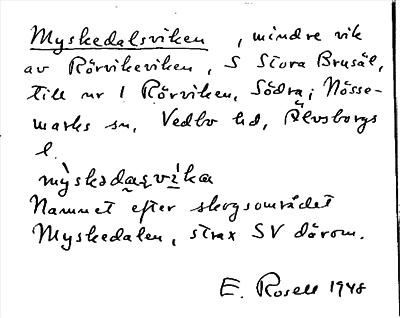 Myskedalsviken, mindre vik
av Rörvikeviken, S Stora Brusäl,
till nr 1 Rörviken, Södra; Nösse-
marks sn, Vedbo hd, Älvsborgs
l.
mỳskədaʂvíka
Namnet efter skogsområdet
Myskedalen, strax SV därom.
E. Rosell 1948